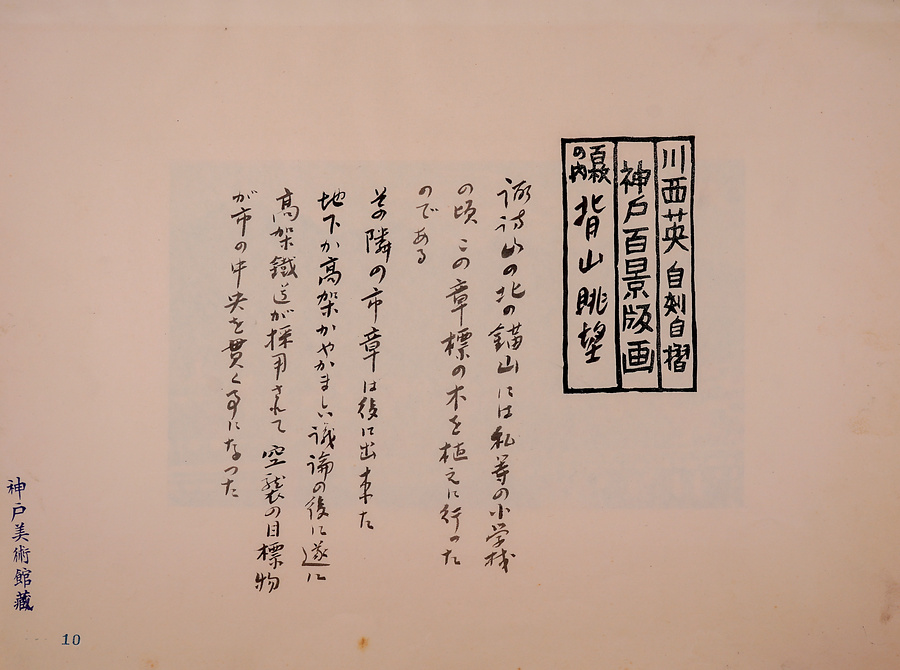 川西英 自刻自摺
神戸百景版画
百枚の内 背山眺望
諏訪山の北の錨山には私等の小学校
の頃 この章標の木を植えに行った
のである
其の隣の市章は後に出来た
地下か高架かやかましい議論の後に遂に
高架鐵道が採用されて 空襲の目標物
が市の中央を貫く事になった
神戸美術館蔵
10